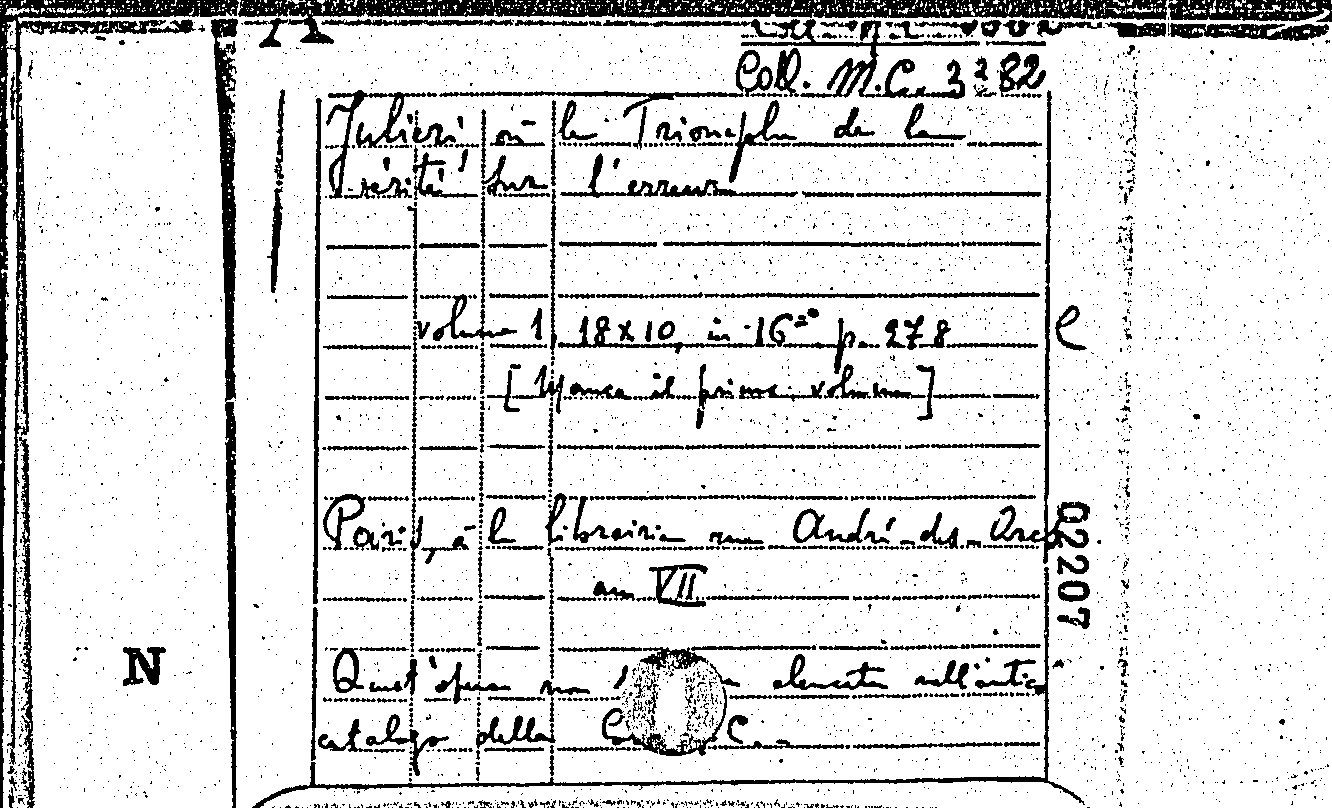 Coll. M.C. 3282
Julien ou le Triomphe de la
vérité sur l'erreur
volume 1, 18x10, in-16° p. 278
[Manca il primo volume]
e
Paris, à la librairie rue André-des-Arcs
an VII
02207
N
Quest'opera non elencata nell'antico
catalogo della C.